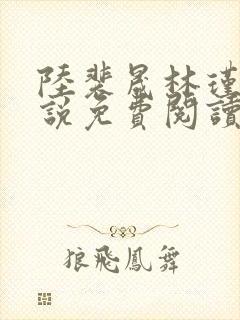 陸裴晟林瑾
說免費閱讀
狼飛鳳舞